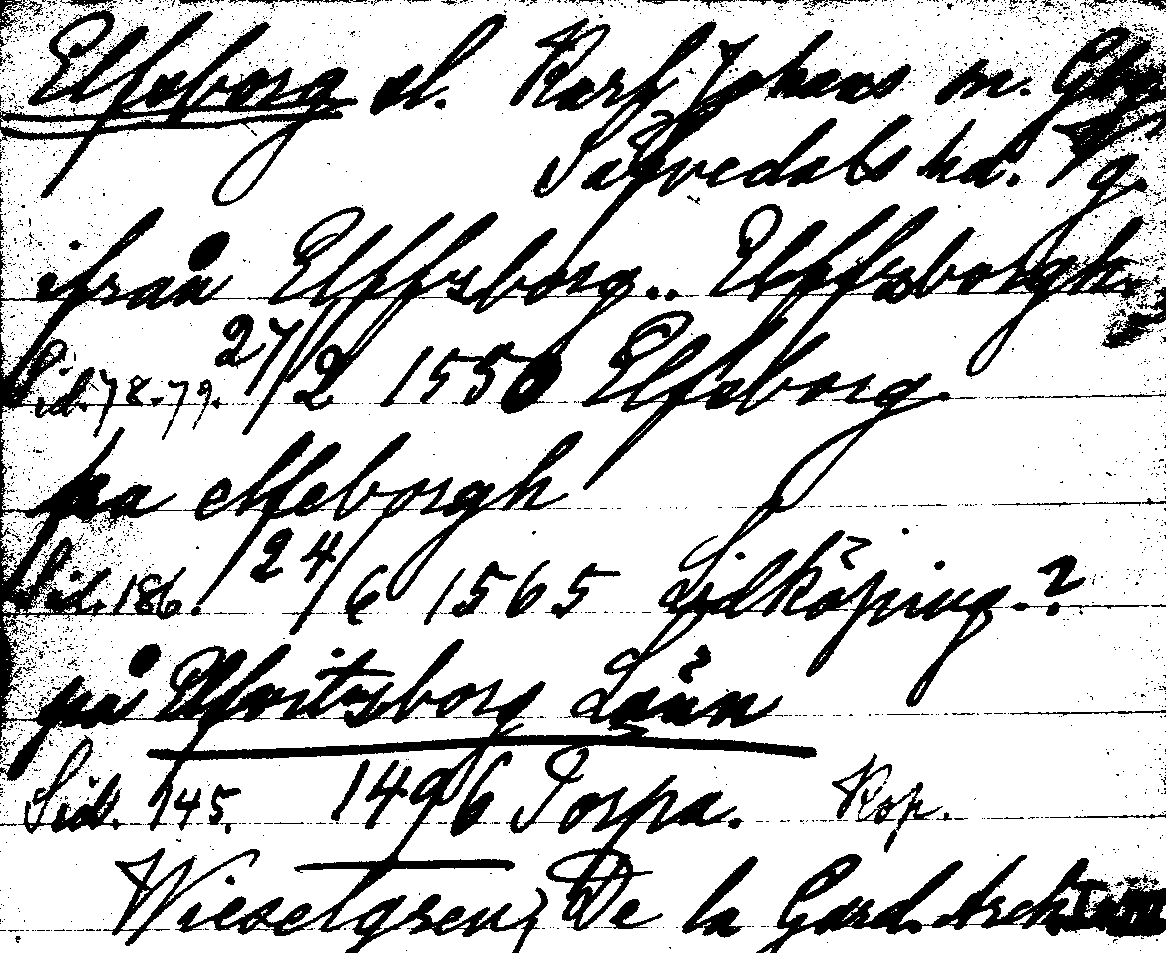 Elfsborg sl. Karl Johans sn. Gbg.
Säfvedals hd. Vg.
ifrån Elffzborg.. Elffzborgh.
Sid. 78-79. 27/2 1550 Elfsborg.
pa elfeborgh
Sid. 186. 24/6 1565 Lidköping.?
på Länn
Sid. 145. 1496 Torpa. Kop.
Wieselgren, De la Gard. Arch.